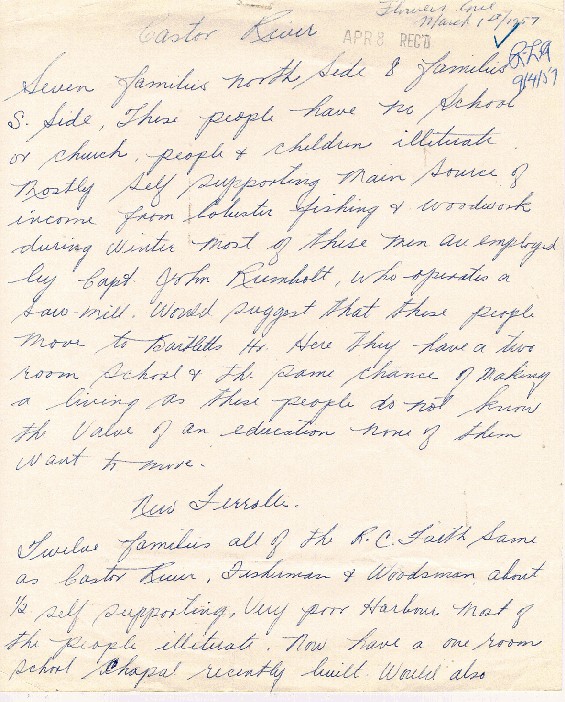 Flowers Cove
March 1st/1957
Castor River
APR 8 REC'D
9/4/57
Seven families north Side 8 families
S. Side, These people have no School
or church, people & children illiterate.
Mostly Self supporting Main Source of
income from lobster fishing & woodwork
during Winter most of these men are employed
by Capt. John Rumbolt, who operates a
saw-mill. Would suggest that these people
Move to Bartletts Hr. Here they have a two
room school & the same chance of Making
a living as these people do not know
the Value of an education none of them
want to move.
New Ferrolle.
Twelve families all of the R.C. Faith Same
as Castor River, Fisherman & Woodsman about
1/2 self supporting, Very poor Harbour most of
the people illiterate. Now have a one room
School Chapal recently built. Would also